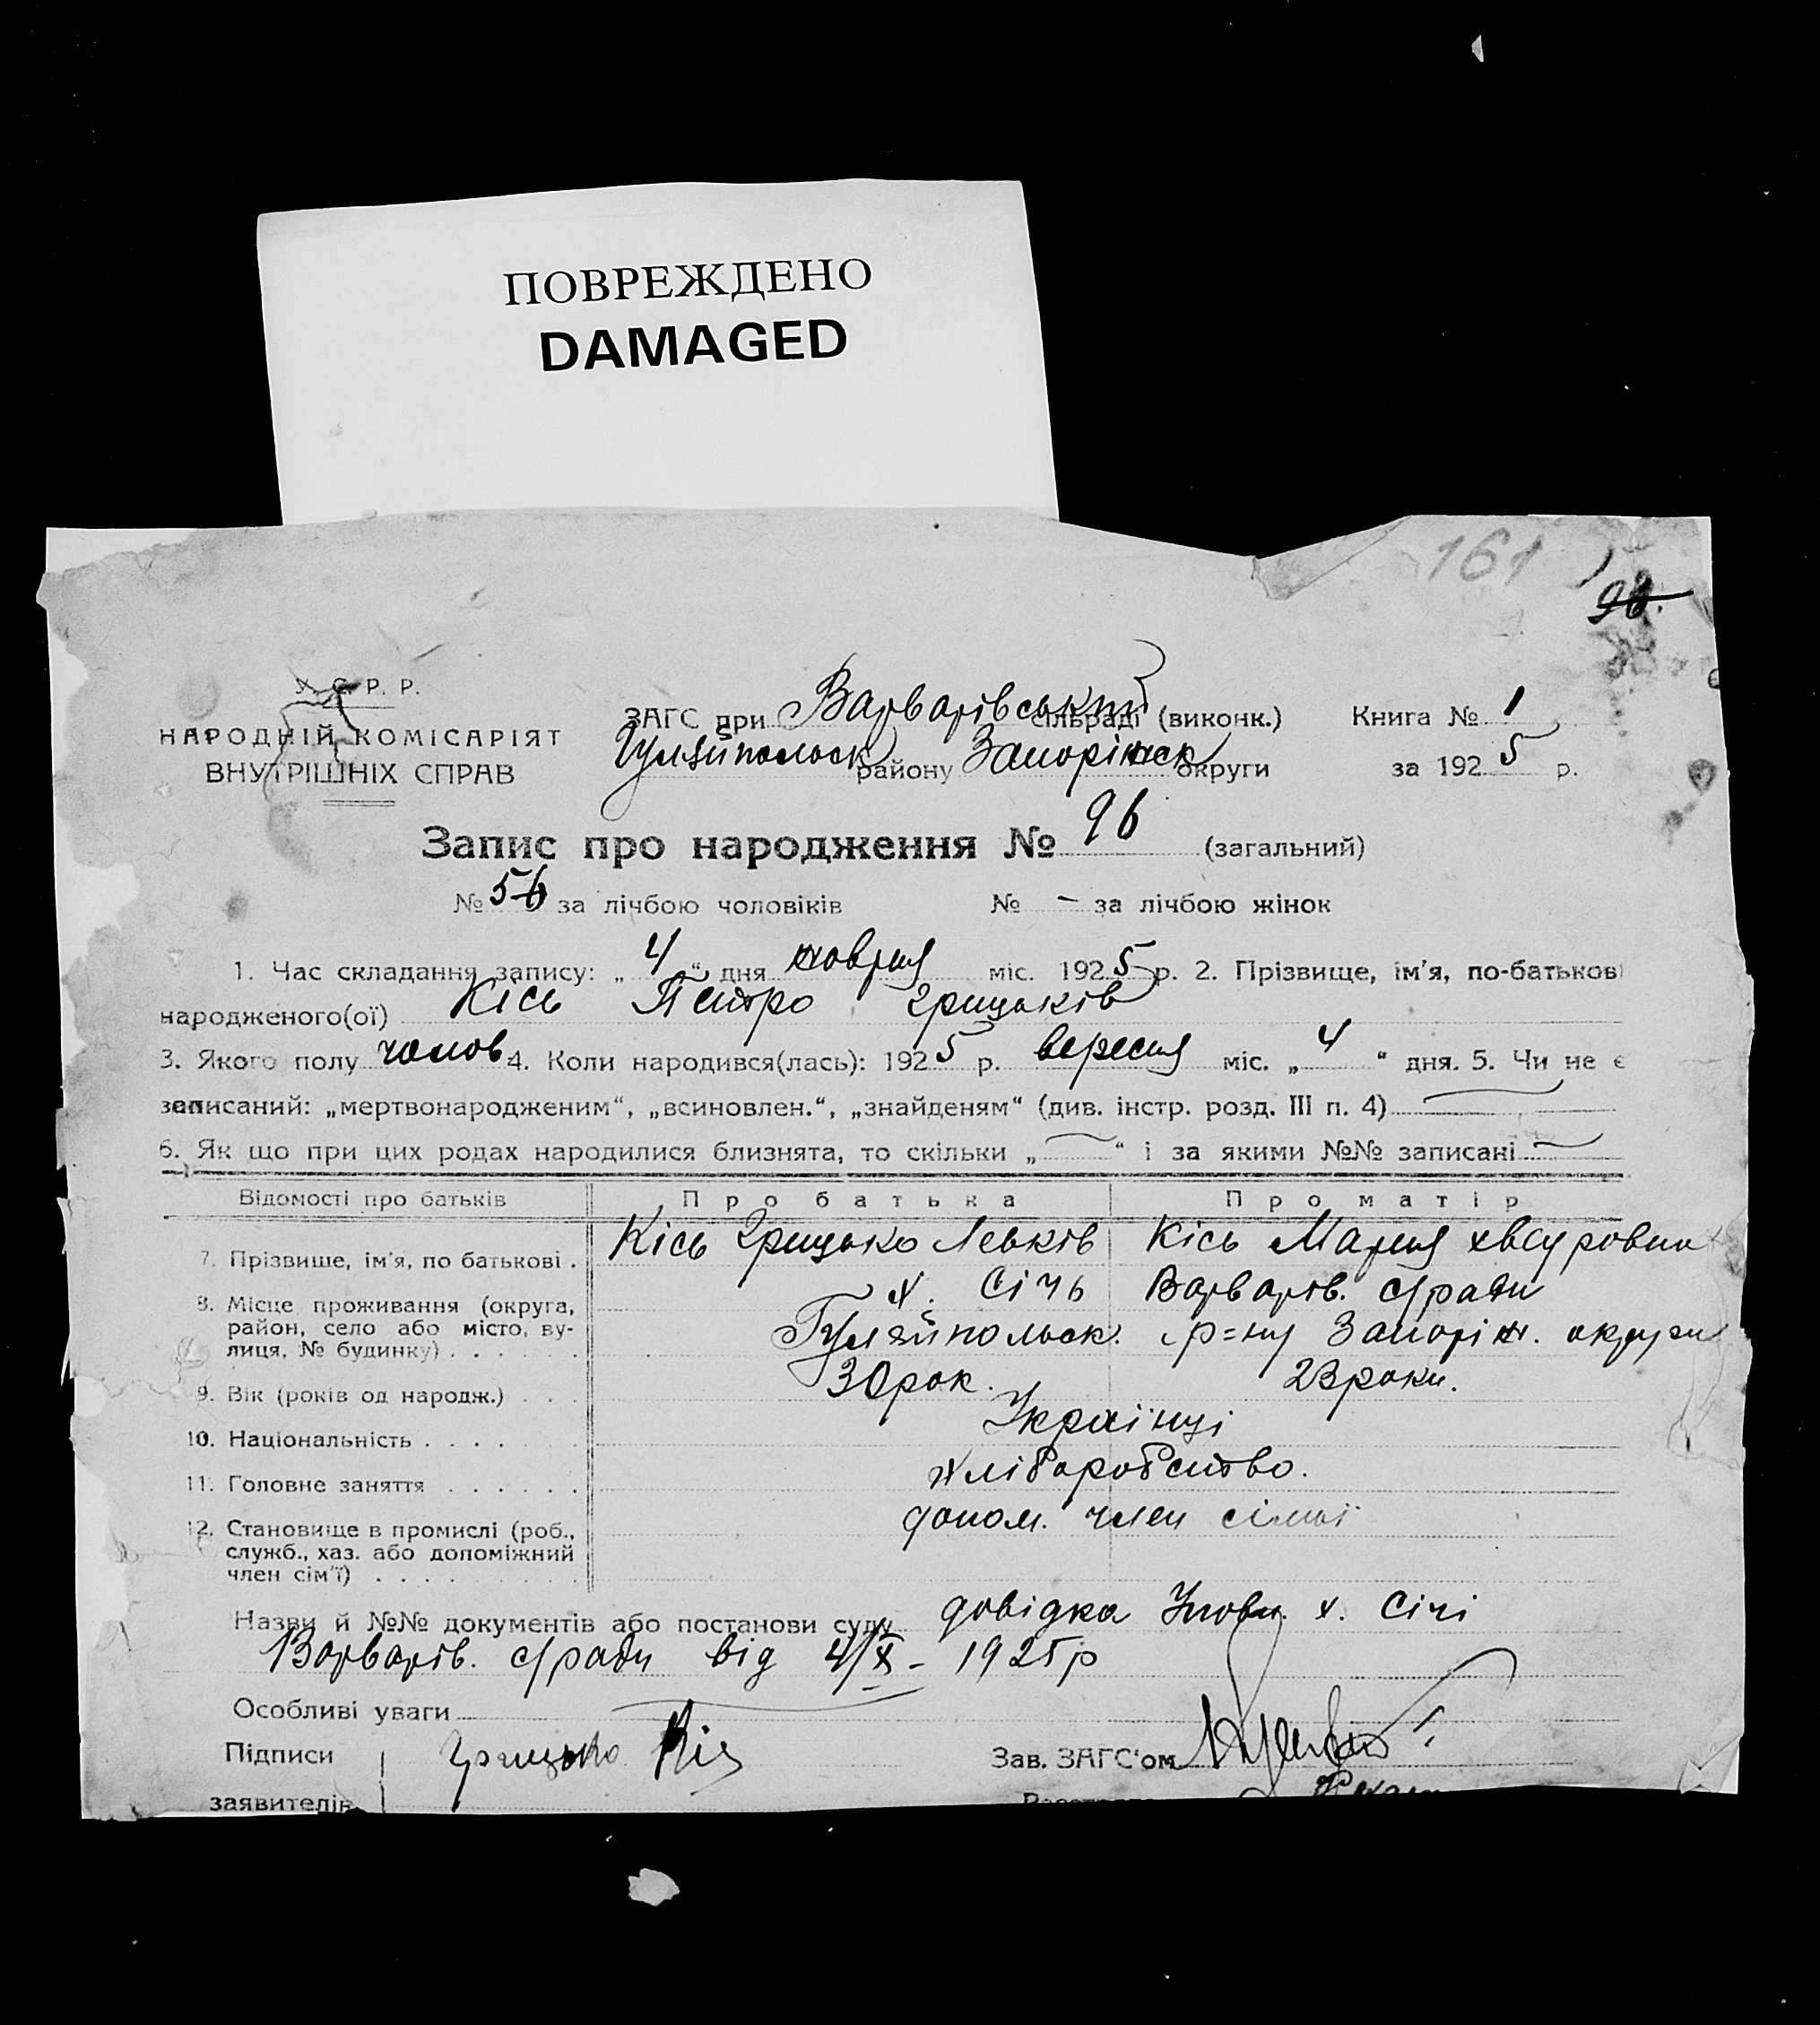 ПОВРЕЖДЕНО
DAMAGED
161
98.
У. С. Р. Р.
НАРОДНІЙ КОМІСАРІЯТ
ВНУТРІШНІХ СПРАВ
ЗАГС при Варварівський сільраді (виконк.) Книга № 1
Гуляйпольск району Запоріжск округи за 1925 р.
Запис про народження № 96 (загальний)
№ 56 за лічбою чоловіків № – за лічбою жінок
1. Час складання запису: „4“ дня новбря міс. 1925 р. 2. Прізвище, ім'я, по-батькові
народженого(ої) Кісь Петро Грицьків
3. Якого полу чолов 4. Коли народився(лась): 1925 р. вересня міс. „4“ дня. 5. Чи не є
записаний: „мертвонародженим“, „всиновлен.“, „знайденям“ (див. інстр. розд. III п. 4)
6. Як що при цих родах народилися близнята, то скільки „—“ і за якими №№ записані —
Відомості про батьків Про батька Про матір
7. Прізвище, ім'я, по батькові . Кісь Грицько Леьків Кісь Мария
8. Місце проживання (округа, район, село або місто, вулиця, № будинку) х. Січь Варварів. с/ради
Гуляйпольск. р=ну Запоріж. округи
9. Вік (років од народж.) 30 рок. 23 роки.
10. Національність Українці
11. Головне заняття хліборобство.
12. Становище в промислі (роб., служб., хаз. або допоміжний член сім'ї) допом. член сімьї
Назви й №№ документів або постанови суду довідка Уповн. х. Січі
Варварів. с/ради від 4/X – 1925 р
Особливі уваги
Підписи Грицько Кіс Зав. ЗАГС'ом
заявителів